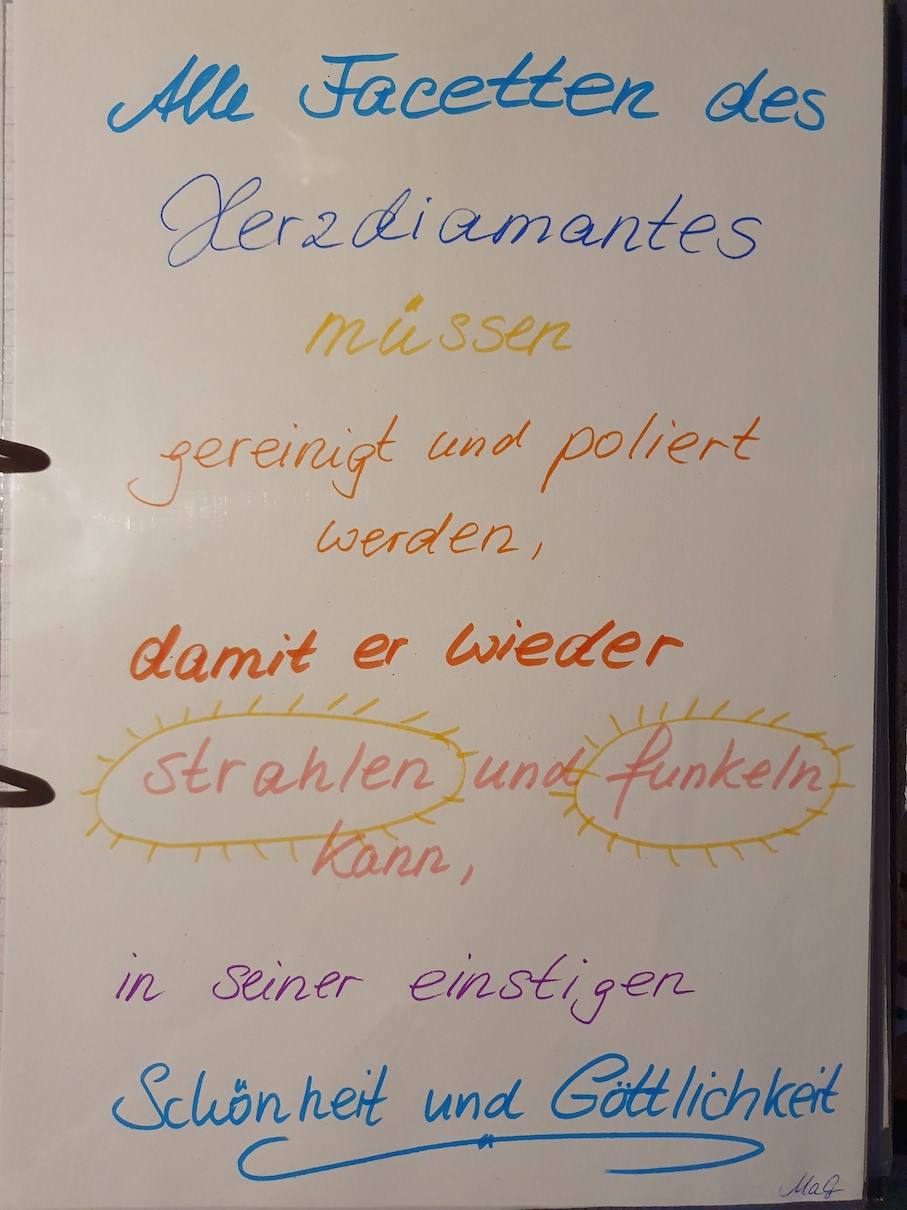 Alle Facetten des
Herzdiamantes
müssen
gereinigt und poliert
werden,
damit er wieder
strahlen und funkeln
kann,
in seiner einstigen
Schönheit und Göttlichkeit